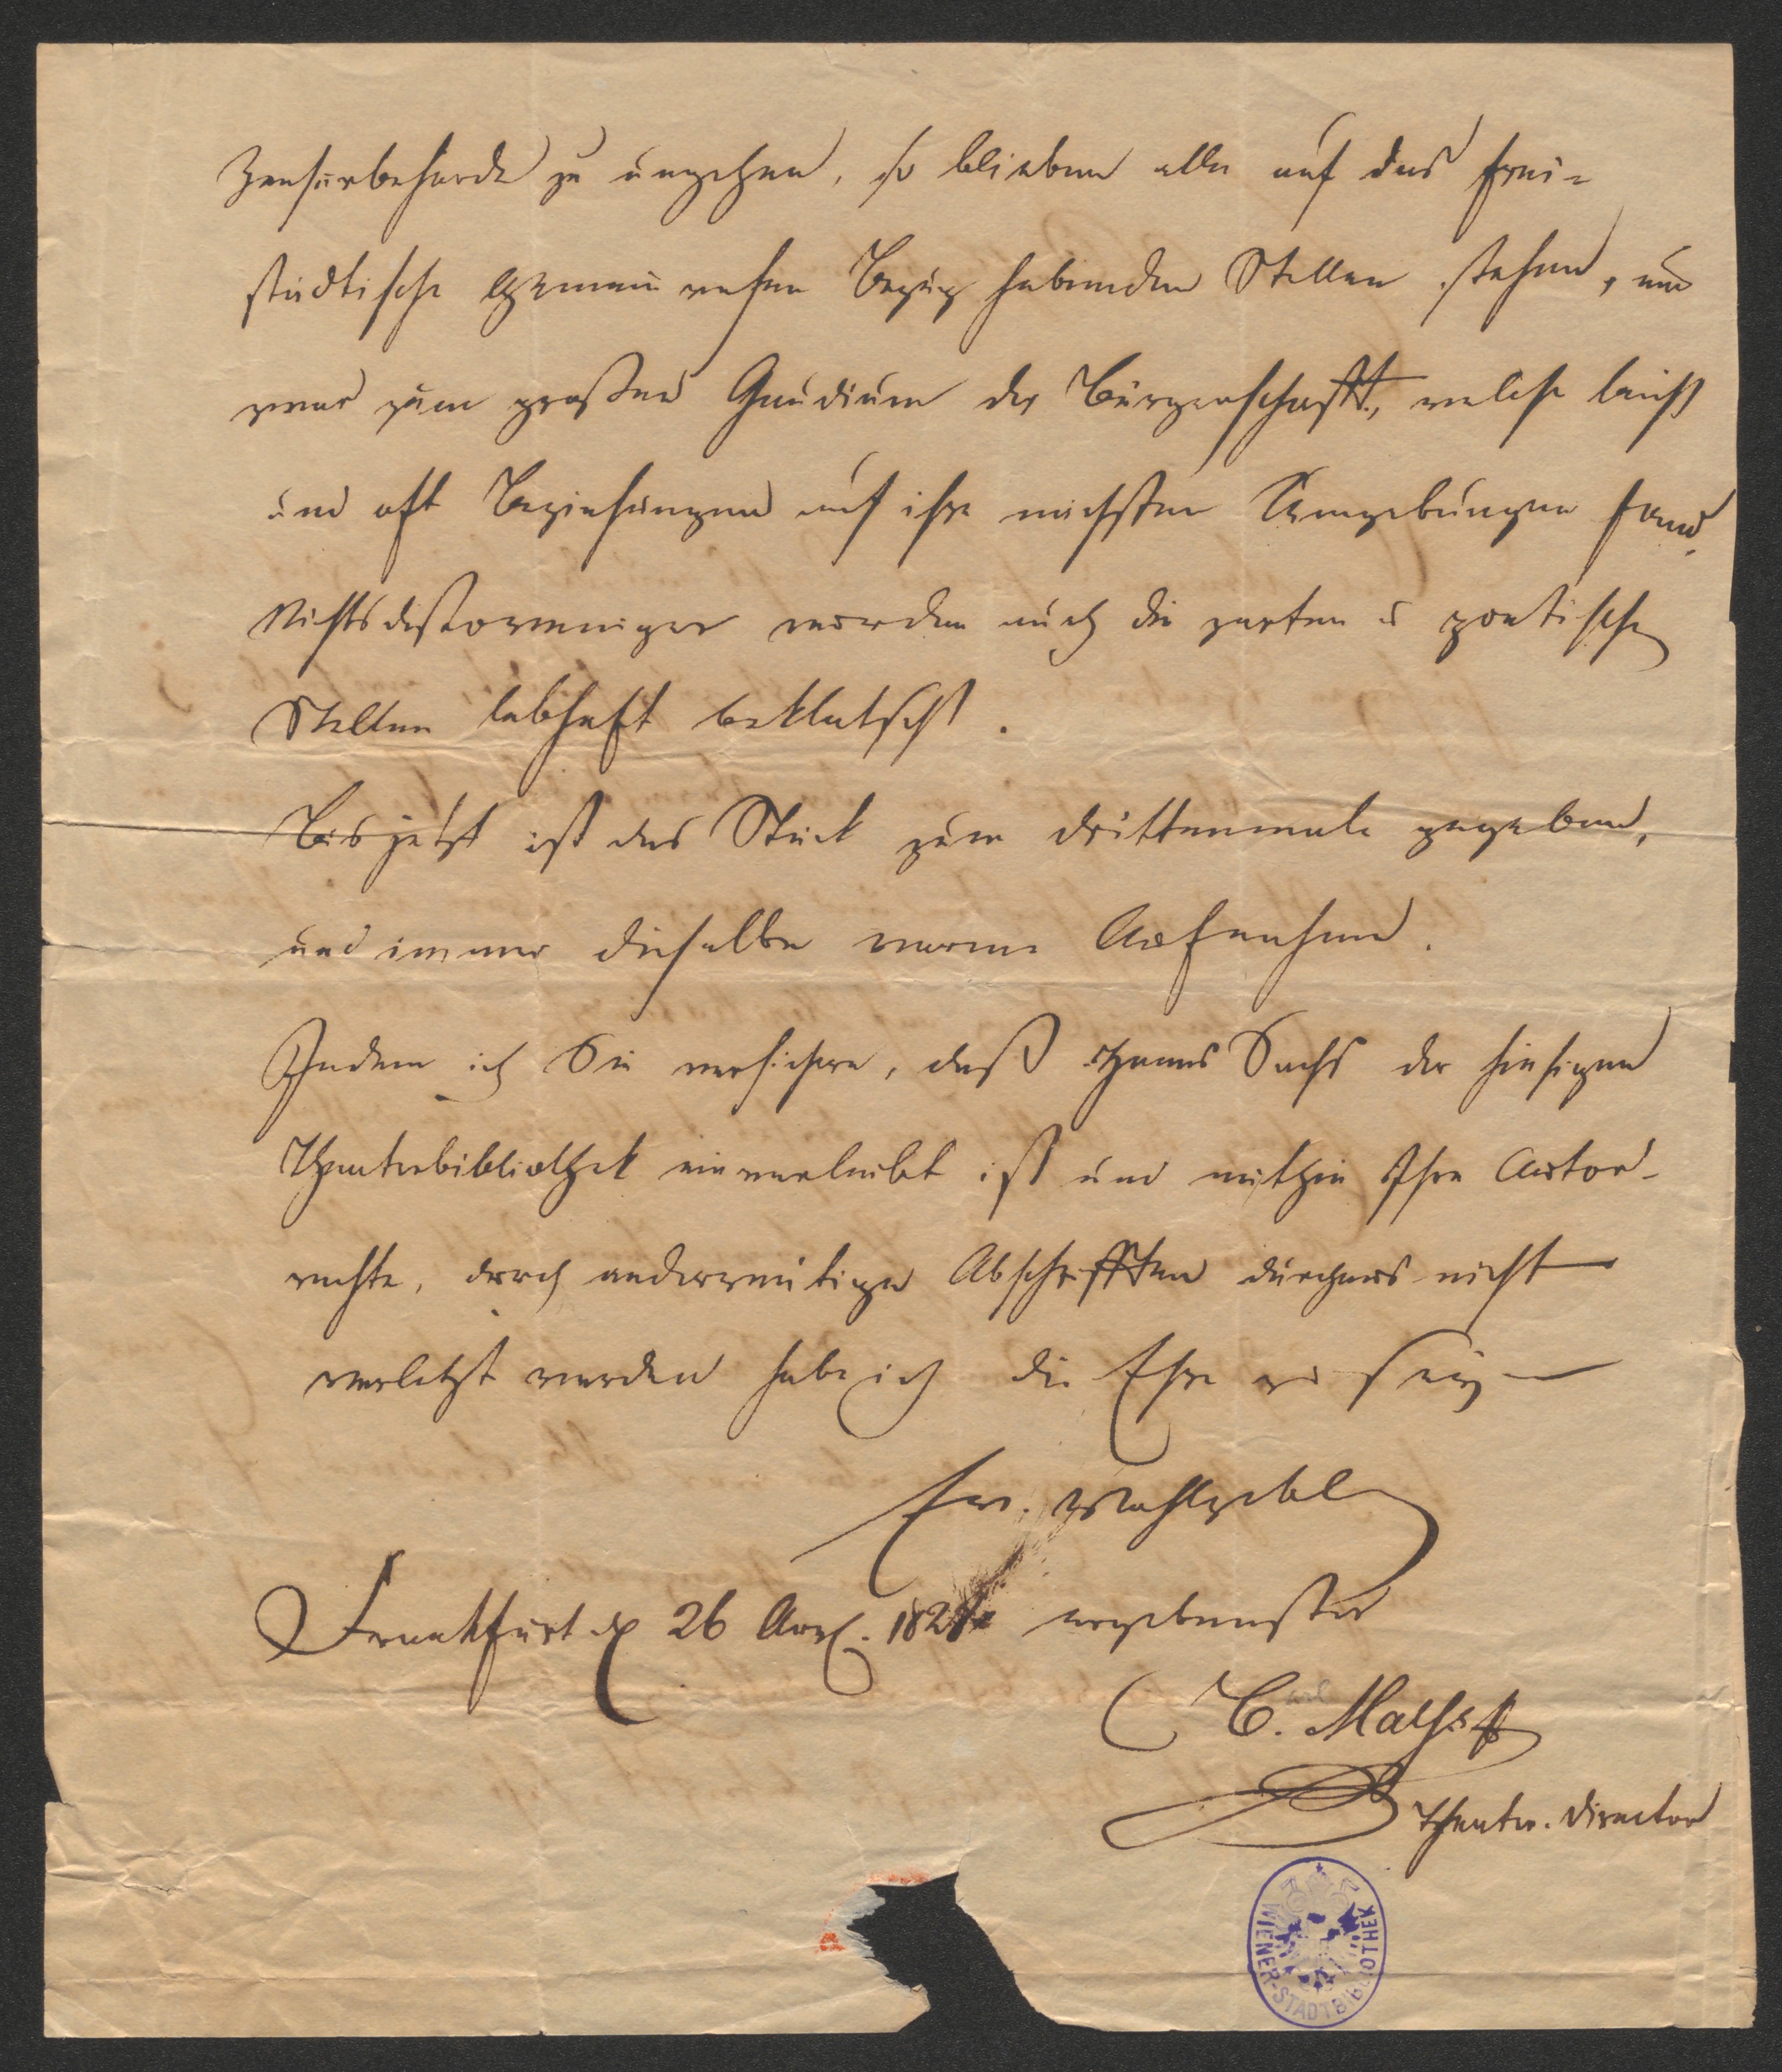 Zensurbehörde zu umgehen, so blieben alle auf das frei-
städtische Gemeinwesen Bezug habenden Stellen stehen, und
zwar zum großen Gaudium der Bürgerschafft, welche leicht
und oft Beziehungen auf ihre nächsten Umgebungen fand.
Nichtsdestoweniger wurden auch die zarten u poetischen
Stellen lebhaft beklatscht.
Bis jetzt ist das Stück zum drittenmale gegeben,
und immer dieselbe warme Aufnahme.
Indem ich Sie versichere, daß Hanns Sachs der hiesigen
Theaterbibliothek einverleibt ist und mithin Ihre Autor-
rechte, durch anderweitige Abschrifften durchaus nicht
verletzt werden habe ich die Ehre zu seyn
Ew. Wohlgebl
Frankfurt d 26 Aug. 182 ergebenster
C. Malss
Theater. Director
WIENER-STADTBIBLIOTHEK